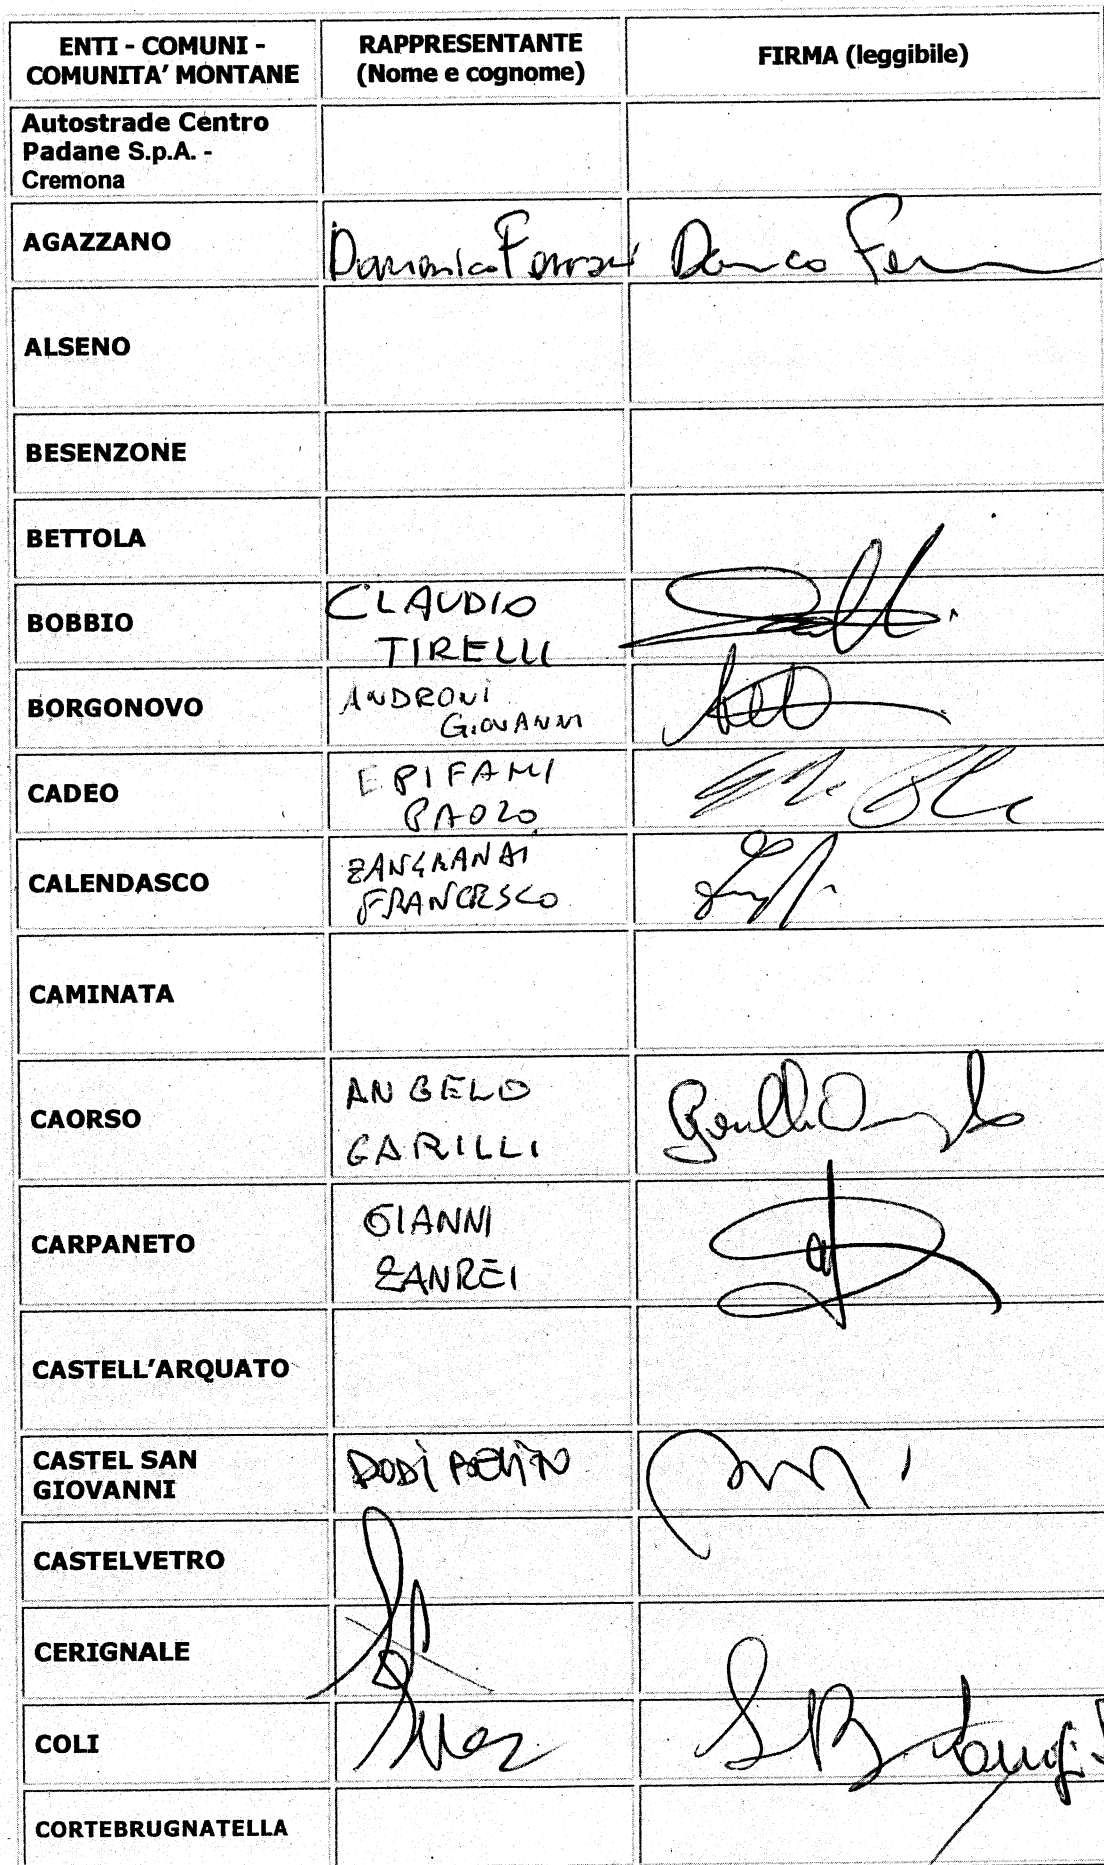 ENTI - COMUNI -
COMUNITA' MONTANE
RAPPRESENTANTE
(Nome e cognome)
FIRMA (leggibile)
Autostrade Centro
Padane S.p.A. -
Cremona
AGAZZANO
Domenico Ferrari
ALSENO
BESENZONE
BETTOLA
BOBBIO
CLAUDIO
TIRELLI
BORGONOVO
ANDRONI
GIOVANNI
CADEO
EPIFANI
PAOLO
CALENDASCO
ZANGRANDI
FRANCESCO
CAMINATA
CAORSO
ANGELO
GARILLI
Garilli Angelo
CARPANETO
GIANNI
ZANREI
CASTELL'ARQUATO
CASTEL SAN
GIOVANNI
DODI
CASTELVETRO
CERIGNALE
COLI
CORTEBRUGNATELLA